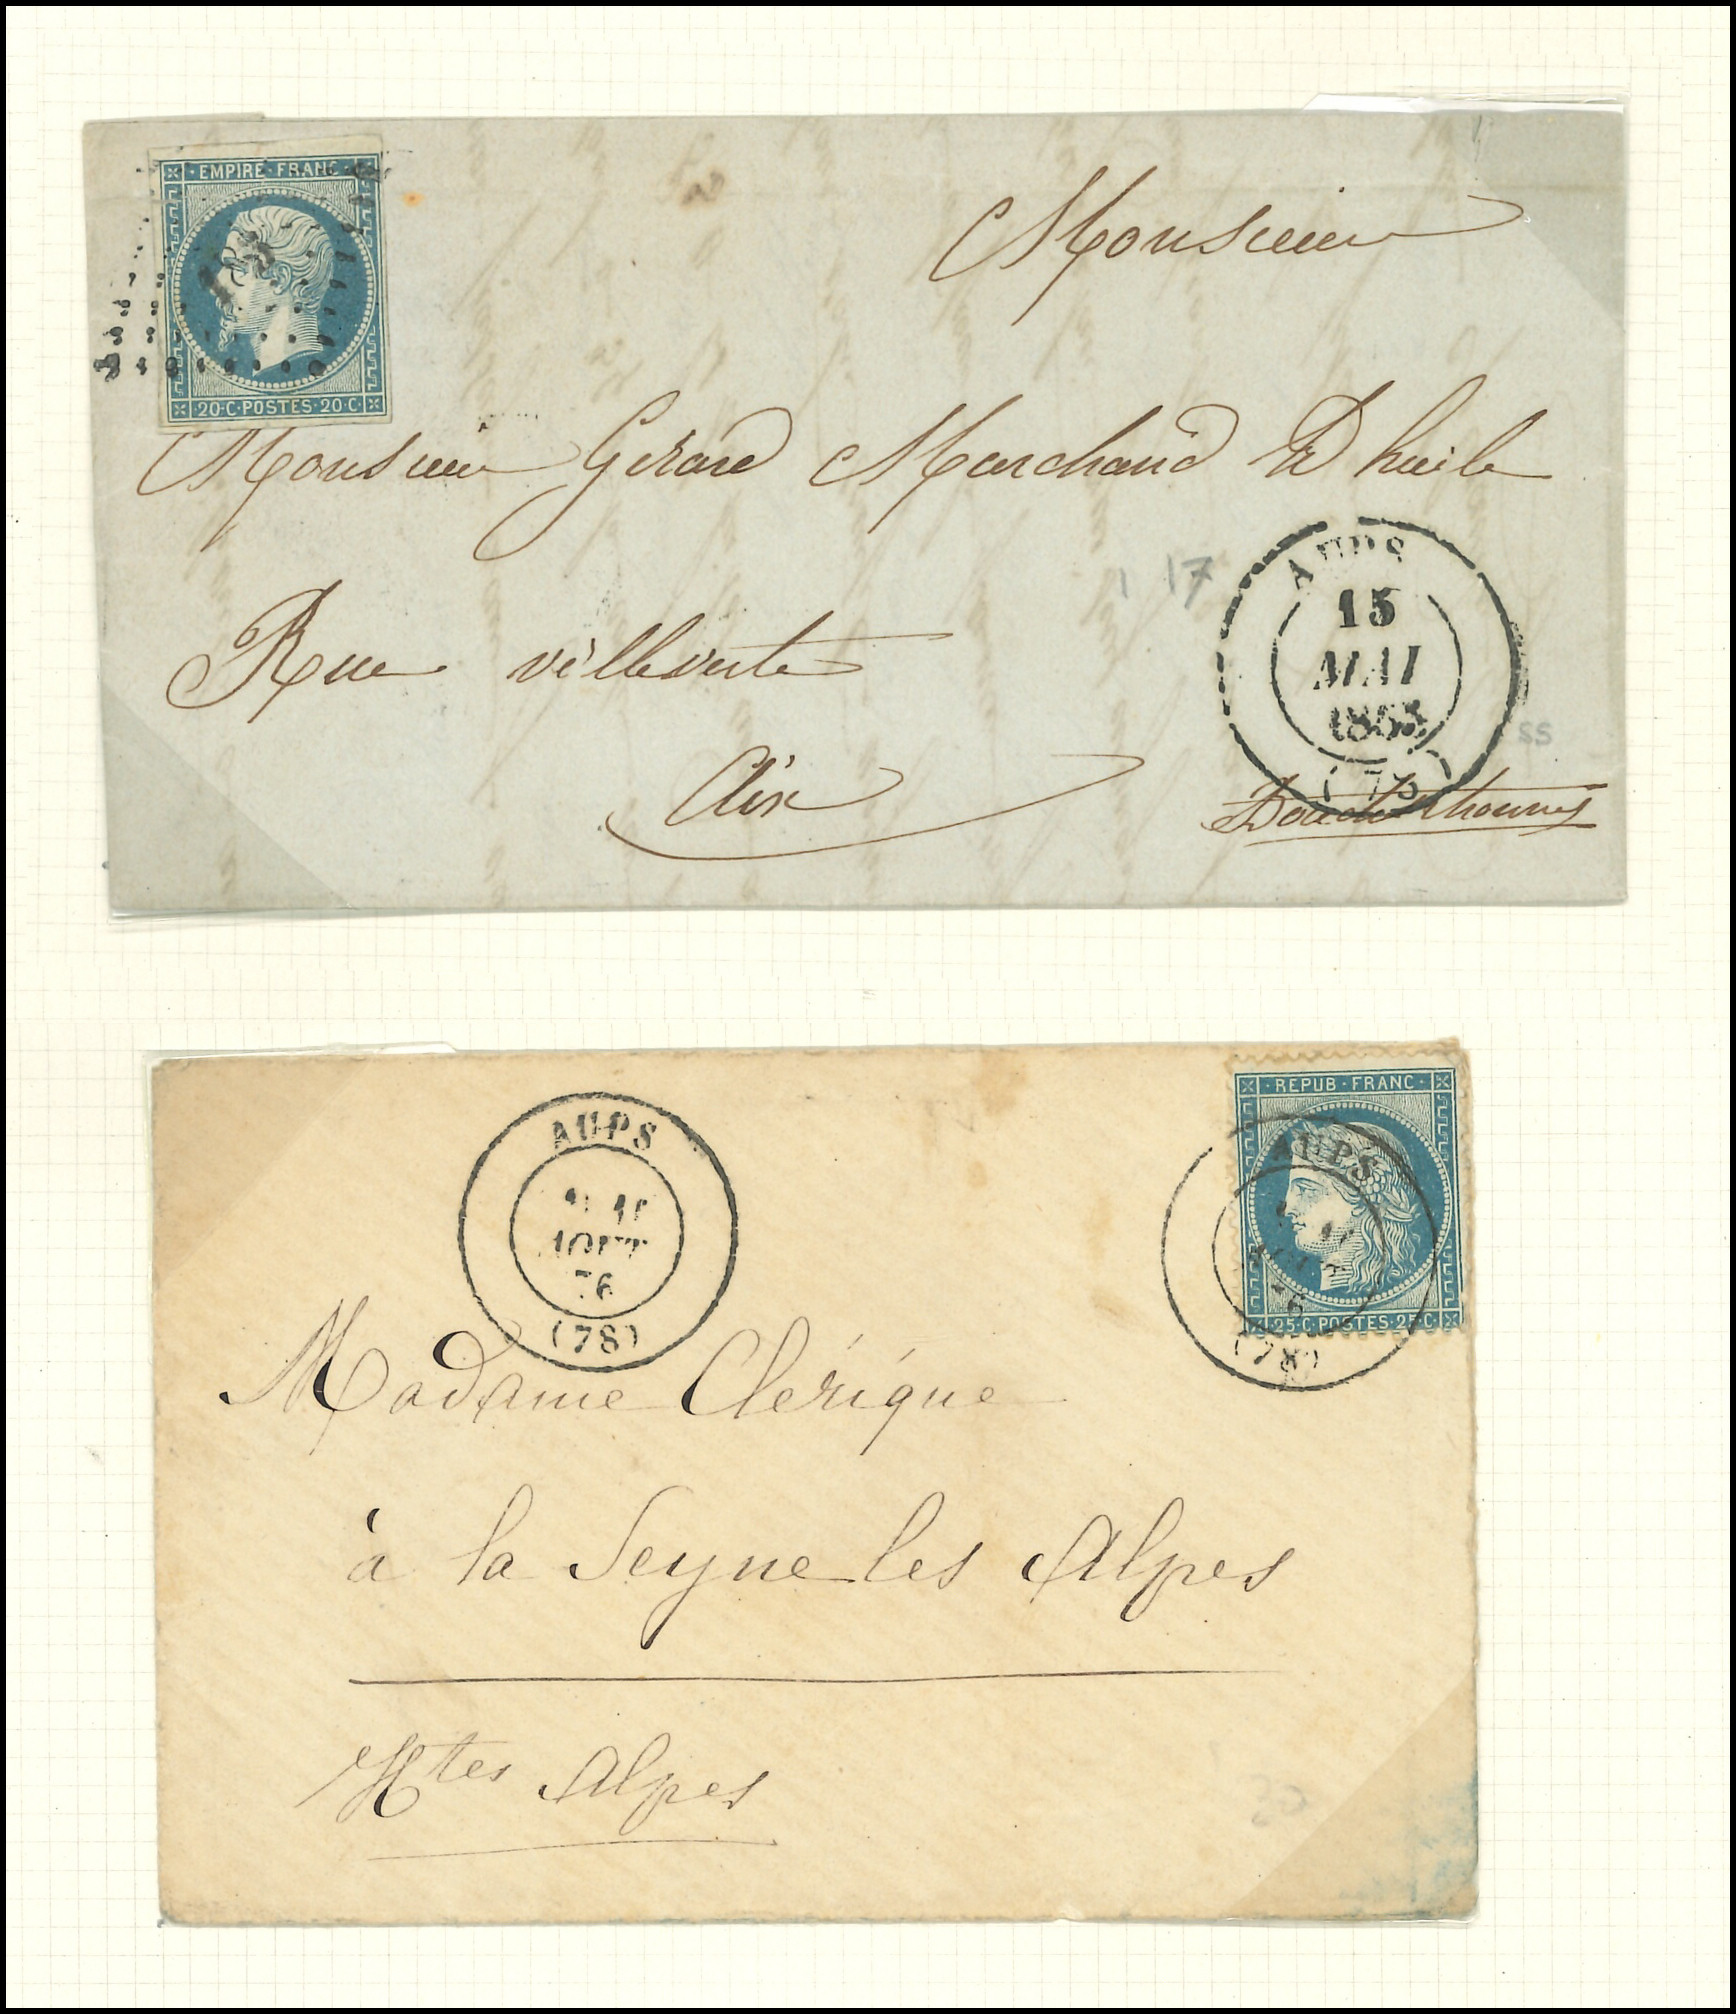 EMPIRE · FRANC
20·C·POSTES·20·C
Monsieur
Monsieur Gérard Marchand D huile
Rue villeverte
Aix
1 17
AUPS
15
MAI
1853
SS
REPUB · FRANC
25·C·POSTES·25·C
AUPS
11
AOUT
76
(78)
AUPS
(78)
Madame Clérique
à la Seyne les Alpes
Htes Alpes